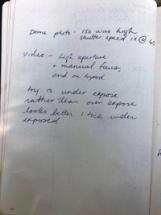 Dome photo - ISO was high
shutter speed 1x @ 60
video - high aperture
+ manual focus,
and on tripod
try to under expose
rather than over expose
looks better I think under
exposed